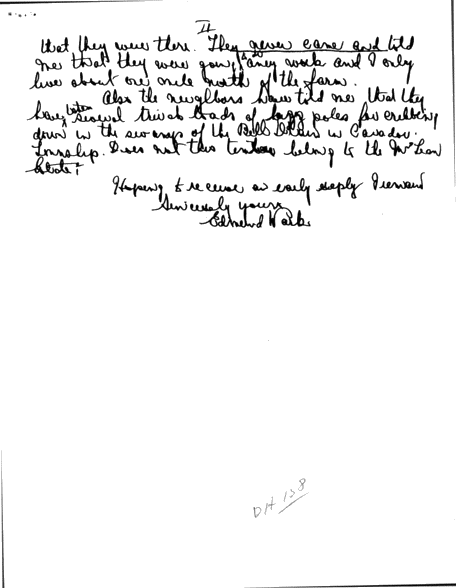 II
that they were there. They never came and told
me that they were going to any work and I only
live about one mile north of the farm.
Also the neighbors have told me that they
have taken several truck loads of poles for cribbing
down in the swamps of the in
Township. Does not this belong to the McLean
Estate?
Hoping to receive an early reply I remain
Sincerely yours
Edmund
DH 138